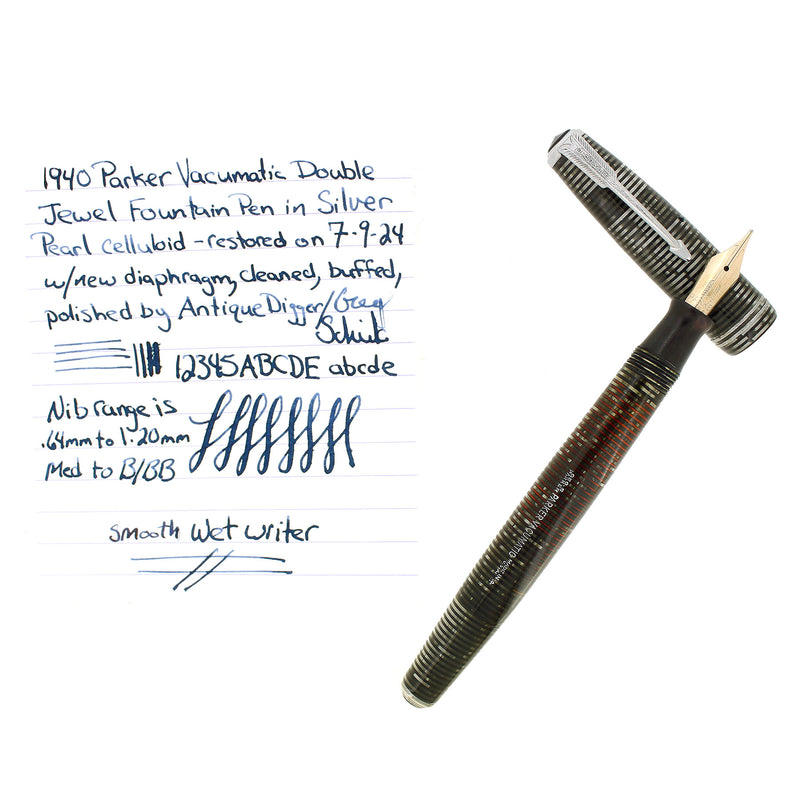 1940 Parker Vacumatic Double
Jewel Fountain Pen in Silver
Pearl celluloid - restored on 7-9-24
w/new diaphragm, cleaned, buffed,
polished by AntiqueDigger/Greg
12345ABCDE abcde
Nib range is
.64mm to 1.20mm
Med to B/BB
smooth wet writer
PARKER VACUMATIC MADE IN